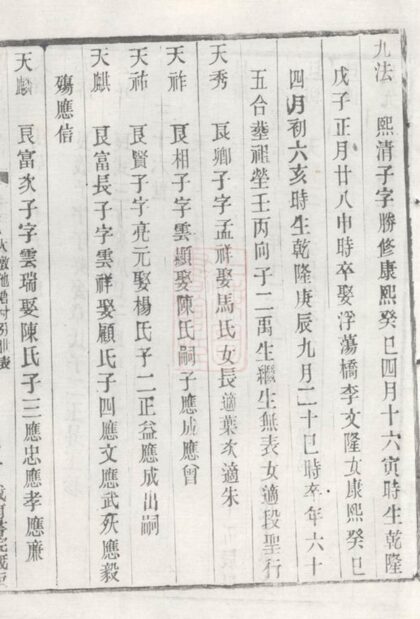 九法 熙清子字勝修康熙癸巳四月十六寅時生乾隆
戊子正月廿八申時卒娶浮蕩橋李文隆女康熙癸巳
四月初六亥時生乾隆庚辰九月二十巳時卒年六十
五合塟祖塋壬丙向子二禹生繼生無表女適段聖行
天秀 艮卿子字孟祥娶馬氏女長適葉次適朱
天祚 艮相子字雲顯娶陳氏嗣子應成應曾
天祐 艮賢子字亮元娶楊氏子二正益應成出嗣
天麒 艮富長子字雲祥娶顧氏子四應文應武殀應毅
殤應信
天麟 艮富次子字雲瑞娶陳氏子三應忠應孝應亷